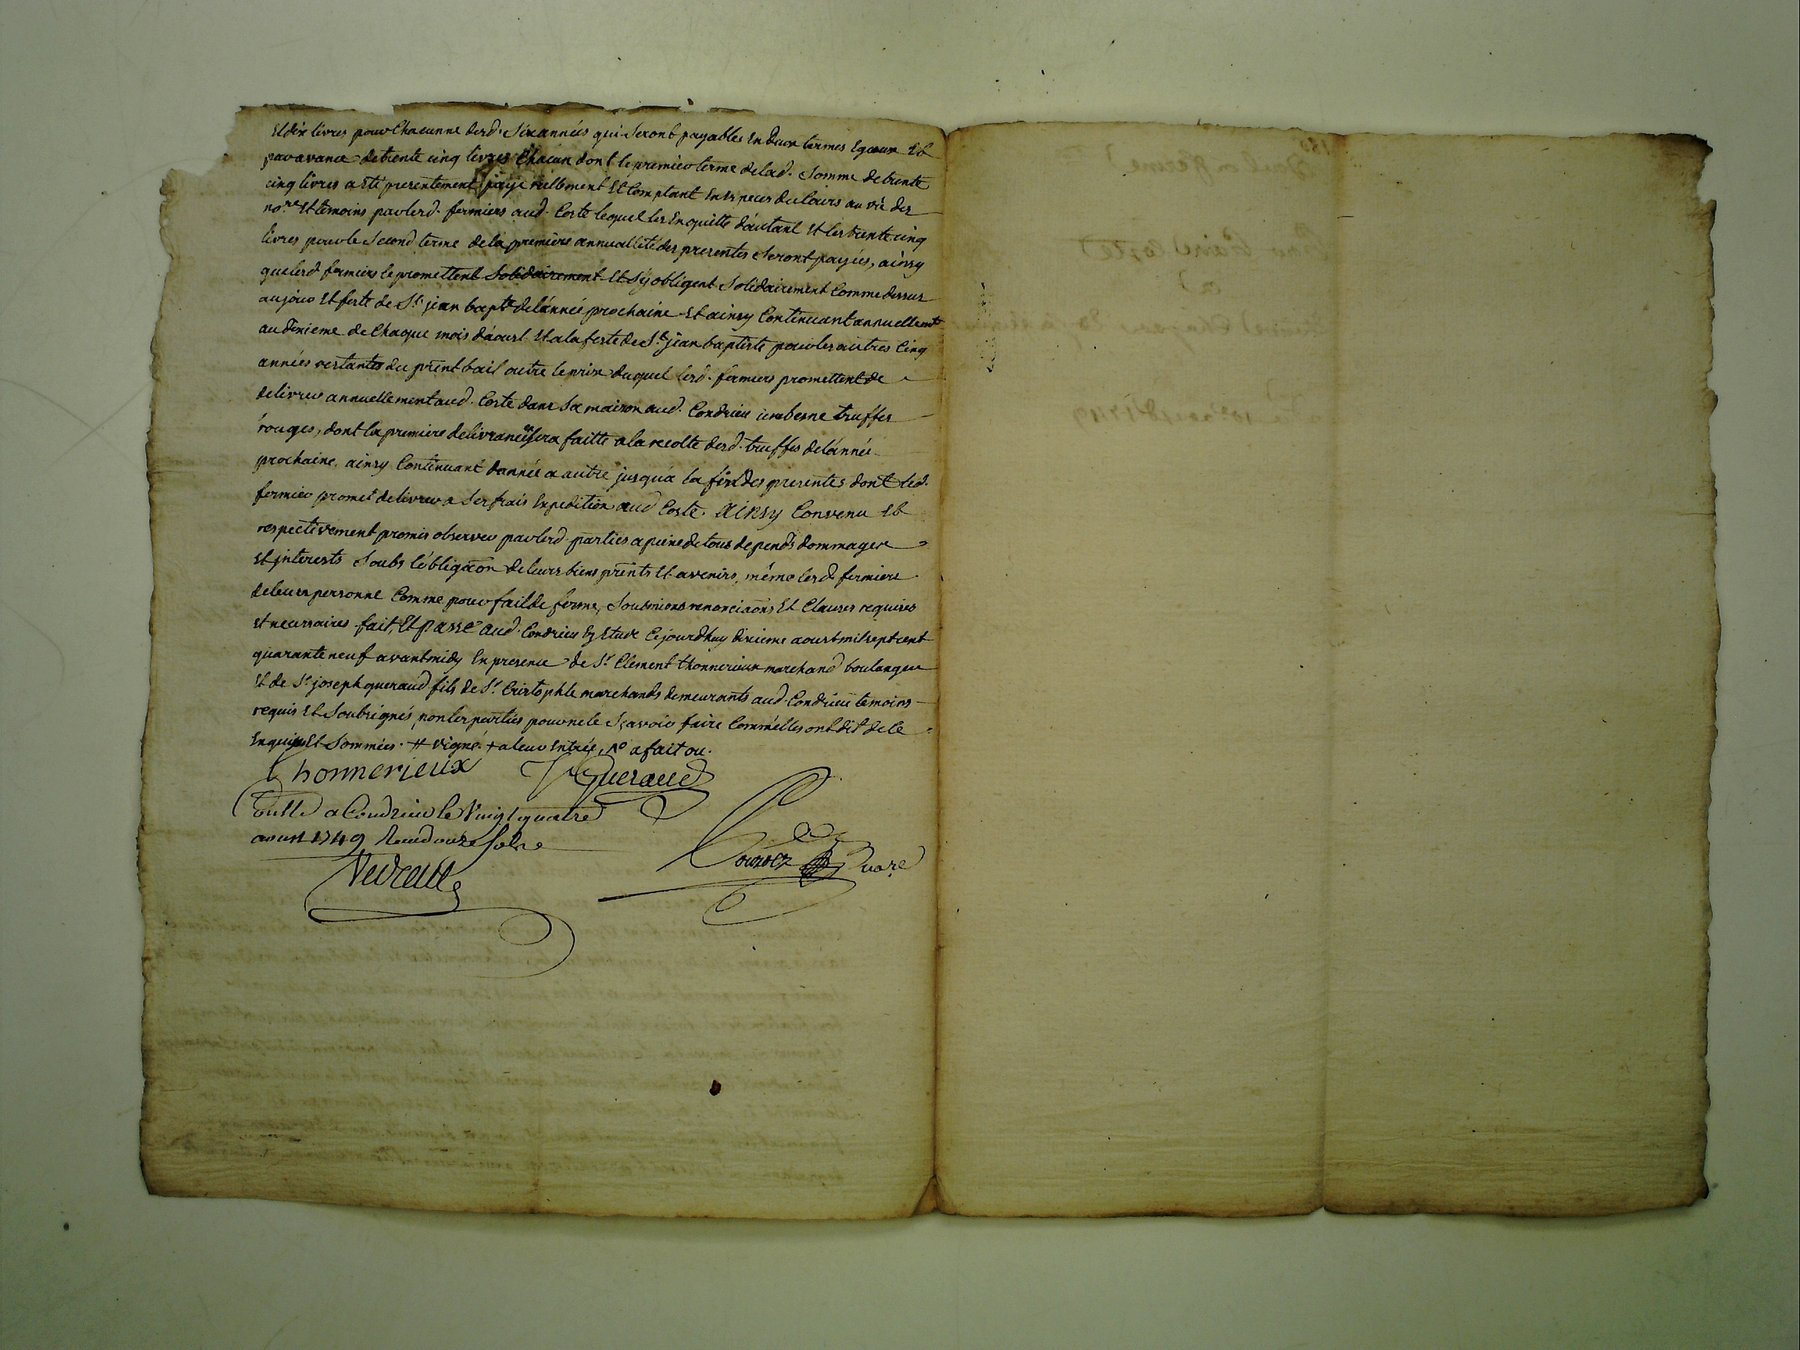 et dix livres pour Chacunne desd. Six années qui Seront payables en deux termes Egaux et
par avance de trente cinq livres Chacun dont le premier terme de lad. Somme de trente
cinq livres a esté presentement payé reellement et Comptant en especes du Cours au vû des
no.res et temoins par lesd. fermiers aud. Coste lequel les en quitte d'autant et les trente cinq
livres pour le Second terme de la premiere annuallité des presentes Seront payées, ainsy
que lesd. fermiers le promettent Solidairement et S'y obligent Solidairement Comme dessus
au jour et feste de St. jean bapte. de l'année prochaine et ainsy Continuant annuellement
au dixieme de Chaque mois d'aoust et a la feste de St. jean baptiste pour les autres Cinq
années restantes du prñt bail outre le prix duquel lesd. fermiers promettent de
delivrer annuellement aud. Coste dans Sa maison aud. Condrieu une benne truffes
rouges, dont la premiere delivrance Sera faitte a la recolte desd. truffes de l'année
prochaine, ainsy Continuant d'année a autre jusqu'a la fin des presentes dont led.
fermier promet delivrer a Ses frais Expedition aud. Coste. Ainsy Convenu et
respectivement promis observer par lesd. parties a peine de tous depends dommages
et interests Soubs l'obligãon de leurs biens prñts et avenirs, même lesd. fermiers
de leurs personne Comme pour fait de ferme, Soumions renonciãons et Clauses requises
et necessaires. fait, et passé aud. Condrieu Ez Etude Cejourdhuy dixieme aoust mil sept cent
quarante neuf avant midy En presence de Sr. Clement thonnerieux marchand boulanger
et de Sr. joseph gueraud fils de Sr. Cristophle marchands demeurants aud. Condrieu temoins
requis et Soubsignés, non les parties pour ne le Sçavoir faire Comm'elles ont dit de ce
Enquises et Sommées. # vigne. + a leur entrée,
thonnerieux J Gueraud
Collé a Condrieu le Vingt quatre
aoust 1749 Receu douze Sols